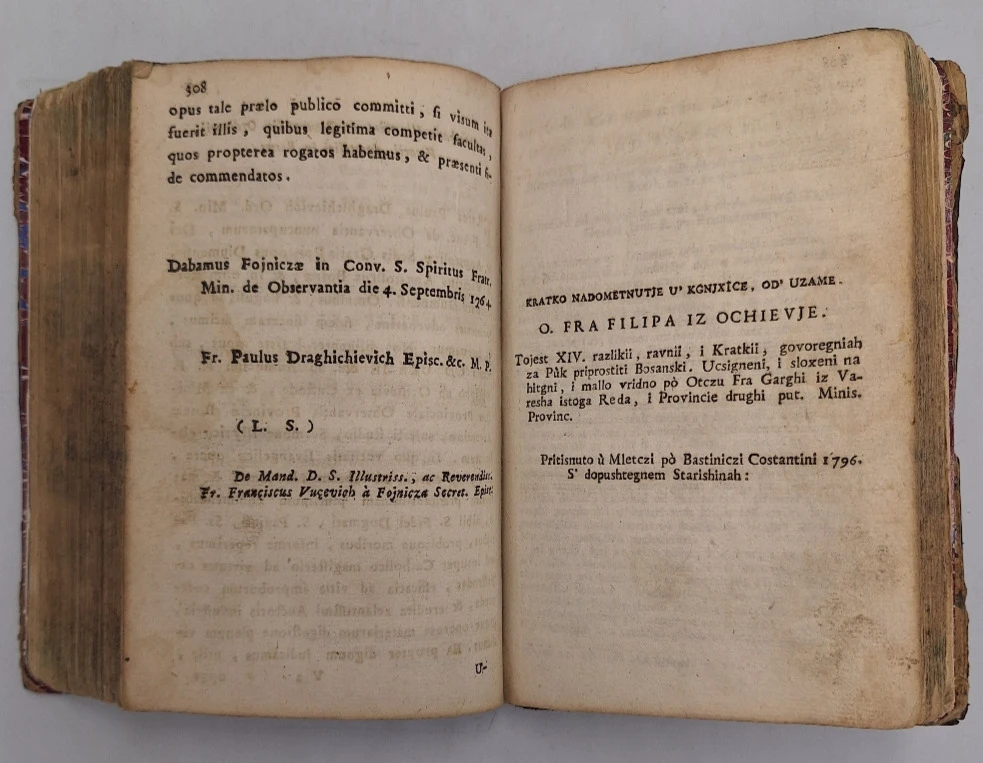 308
opus tale prælo publico committi, si visum ita
fuerit illis, quibus legitima competit facultas,
quos propterea rogatos habemus, & præsenti fi-
de commendatos.
Dabamus Fojniczæ in Conv. S. Spiritus Fratr.
Min. de Observantia die 4. Septembris 1764.
Fr. Paulus Draghichievich Episc. &c. M. P.
( L. S. )
De Mand. D. S. Illustriss., ac Reverendiss.
Fr. Franciscus Vucevich à Fojnicza Secret. Episc.
U-
KRATKO NADOMETNUTJE U' KGNJXÌCE, OD' UZAME.
O. FRA FILIPA IZ OCHIEVJE.
Tojest XIV. razlikii, ravnii, i Kratkii, govoregniah
za Pûk priprostiti Bosanski. Ucsigneni, i sloxeni na
hitgni, i mallo vridno pò Otczu Fra Garghi iz Va-
resha istoga Reda, i Provincie drughi put. Minis.
Provinc.
Pritisnuto ù Mletczi pò Bastiniczi Costantini 1796.
S' dopushtegnem Starishinah :